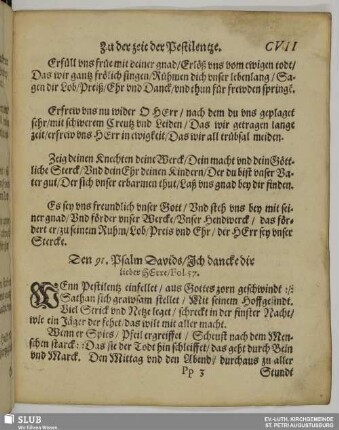 Zu der zeit der Pestilentze. CVII
Erfüll vns früe mit deiner gnad/ Erlöß vns vom ewigen todt/
Das wir gantz frölich singen/ Rühmen dich vnser lebenlang/ Sa-
gen dir Lob/ Preiß/ Ehr vnd Danck/ vnd thun für frewden springẽ.
Erfrew vns nu wider O HErr/ nach dem du vns geplaget
sehr/ mit schwerem Creutz vnd Leiden/ Das wir getragen lange
zeit/ erfrew vns HErr in ewigkeit/ Das wir all trübsal meiden.
Zeig deinen Knechten deine Werck/ Dein macht vnd dein Gött-
liche Sterck/ Vnd dein Ehr deinen Kindern/ Der du bist vnser Va-
ter gut/ Der sich vnser erbarmen thut/ Laß vns gnad bey dir finden.
Es sey vns freundlich vnser Gott/ Vnd steh vns bey mit sei-
ner gnad/ Vnd förder vnser Wercke/ Vnser Hendwerck/ das för-
dert er/ zu seinem Ruhm/ Lob/ Preis vnd Ehr/ der HErr sey vnser
Stercke.
Den 91. Psalm Davids/ Ich dancke dir
lieber HErre/ Fol. 57.
WEnn Pestilentz einfellet/ aus Gottes zorn geschwind :/:
Sathan sich grawsam stellet/ Mit seinem Hoffgesind.
Viel Strick vnd Netze leget/ schreckt in der finster Nacht/
wie ein Jäger der fehet/ das wilt mit aller macht.
Wenn er Spies/ Pfeil ergreiffet/ Scheust nach dem Men-
schen starck :: Das sie der Todt hin schleiffet/ das geht durch Bein
vnd Marck. Den Mittag vnd den Abend/ durchaus zu aller
Pp 3 Stundt
SLUB
Wir führen Wissen.
EV.-LUTH. KIRCHGEMEINDE
ST. PETRI AUGUSTUSBURG